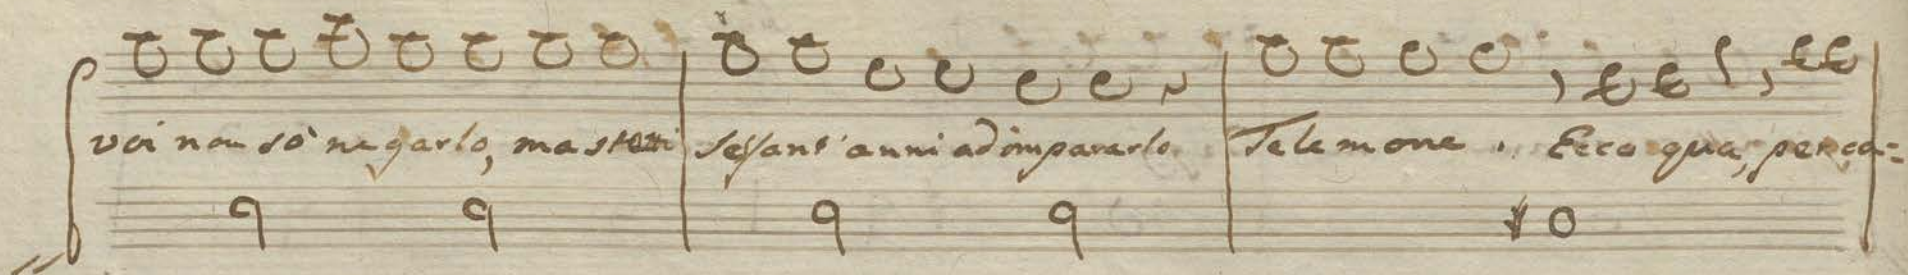 voi non sò negarlo, ma stetti sessant'anni ad impararlo Telemone. Ecco qua, per ca=